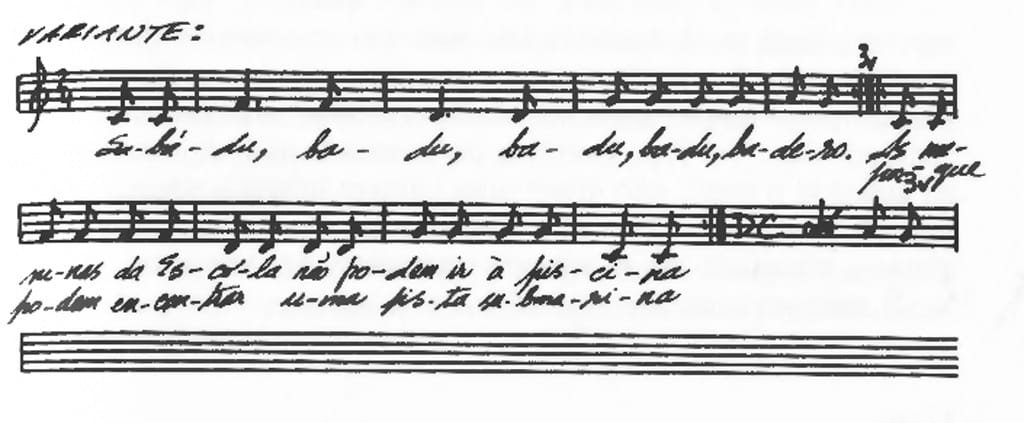 VARIANTE:
3v
Su-bá-du, ba-du, ba-du, ba-du, ba-de-ro. As me-
por-que
3v
D.C.
ni-nas da Es-co-la não po-dem ir à pis-ci-na
po-dem en-con-trar u-ma pis-ta su-bma-ri-na